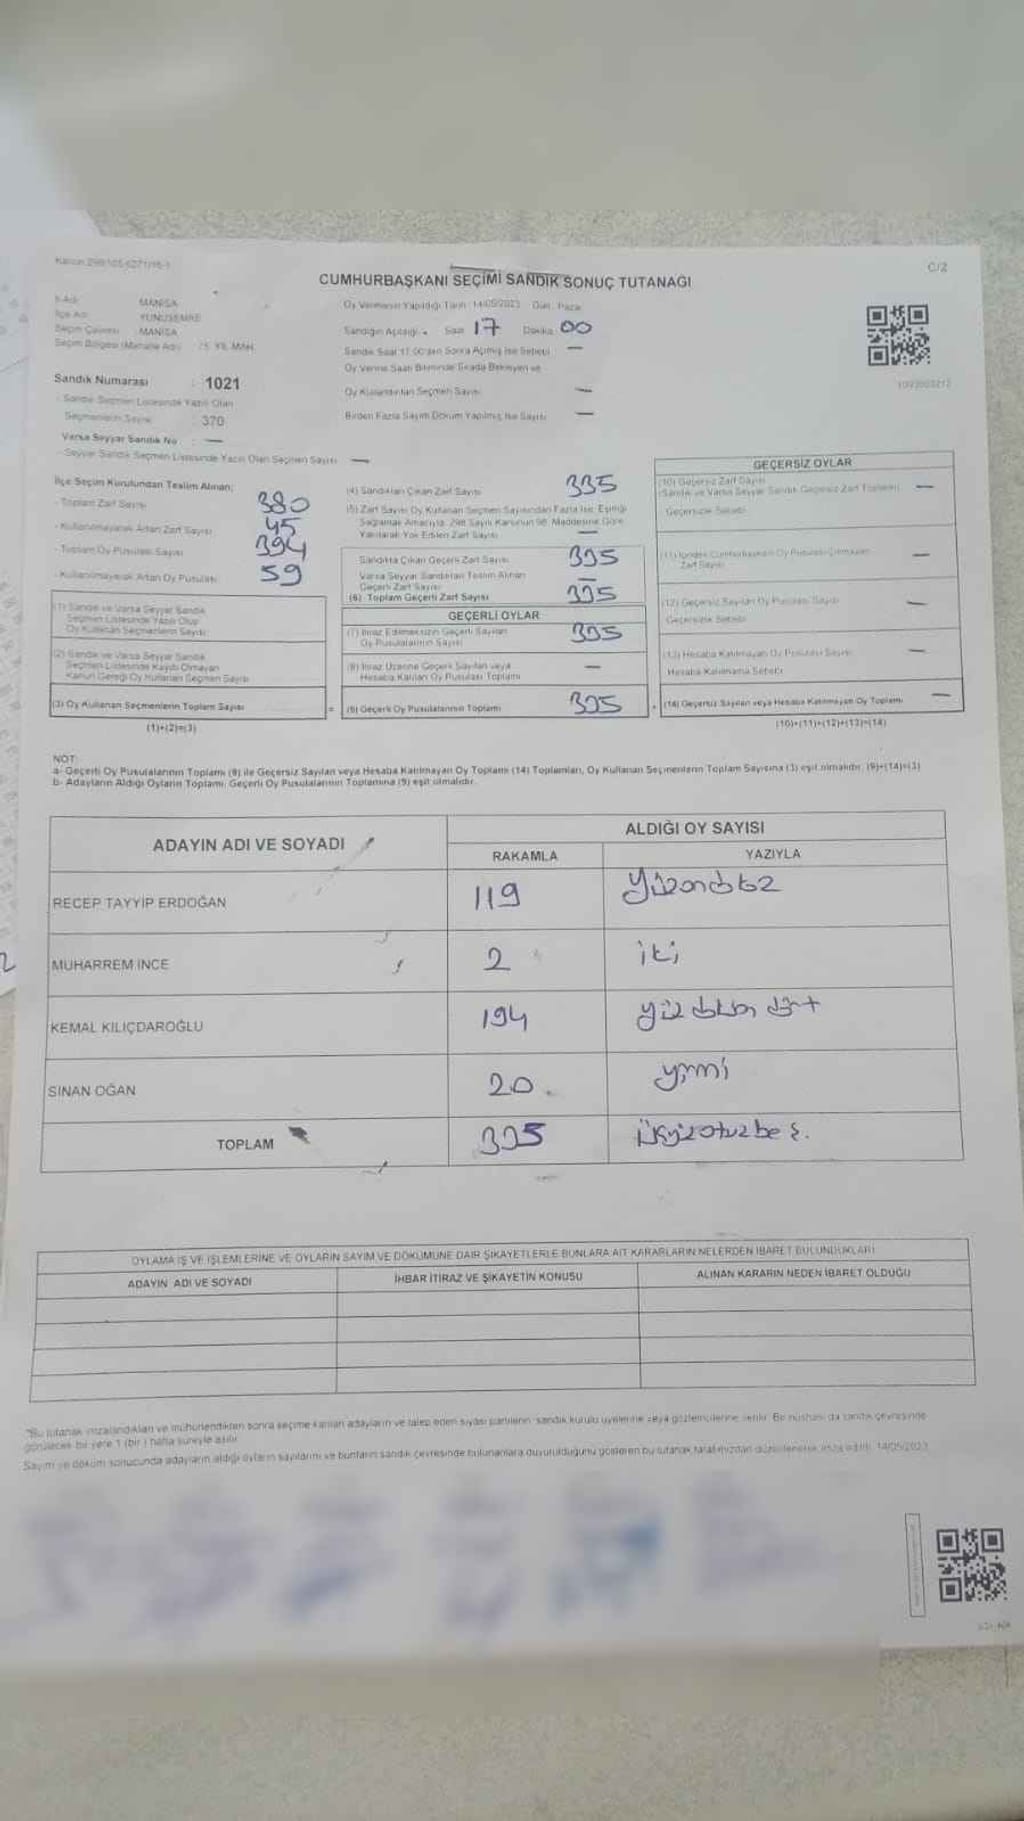 C/2
CUMHURBAŞKANI SEÇİMİ SANDIK SONUÇ TUTANAĞI
İl Adı MANİSA
İlçe Adı YUNUSEMRE
Seçim Çevresi MANİSA
Seçim Bölgesi (Mahalle Adı) 75. YIL MAH.
Sandık Numarası : 1021
Sandık Seçmen Listesinde Yazılı Olan
Seçmenlerin Sayısı : 370
Varsa Seyyar Sandık No : —
Seyyar Sandık Seçmen Listesinde Yazılı Olan Seçmen Sayısı —
Oy Vermenin Yapıldığı Tarih: 14/05/2023 Gün: Pazar
Sandığın Açıldığı Saat 17 Dakika 00
Sandık Saat 17:00'den Sonra Açılmış İse Sebebi —
Oy Verme Saati Bitiminde Sırada Bekleyen ve
Oy Kullandırılan Seçmen Sayısı —
Birden Fazla Sayım Döküm Yapılmış İse Sayısı —
İlçe Seçim Kurulundan Teslim Alınan;
- Toplam Zarf Sayısı 380
- Kullanılmayarak Artan Zarf Sayısı 45
- Toplam Oy Pusulası Sayısı 394
- Kullanılmayarak Artan Oy Pusulası 59
(1) Sandık ve Varsa Seyyar Sandık
Seçmen Listesinde Yazılı Olup
Oy Kullanan Seçmenlerin Sayısı
(2) Sandık ve Varsa Seyyar Sandık
Seçmen Listesinde Kaydı Olmayan
Kanun Gereği Oy Kullanan Seçmen Sayısı
(3) Oy Kullanan Seçmenlerin Toplam Sayısı
(1)+(2)=(3)
(4) Sandıktan Çıkan Zarf Sayısı 335
(5) Zarf Sayısı Oy Kullanan Seçmen Sayısından Fazla İse; Eşitliği
Sağlamak Amacıyla, 298 Sayılı Kanunun 98. Maddesine Göre
Yakılarak Yok Edilen Zarf Sayısı —
Sandıkta Çıkan Geçerli Zarf Sayısı 335
Varsa Seyyar Sandıktan Teslim Alınan
Geçerli Zarf Sayısı —
(6) Toplam Geçerli Zarf Sayısı 335
GEÇERLİ OYLAR
(7) İtiraz Edilmeksizin Geçerli Sayılan
Oy Pusulalarının Sayısı 335
(8) İtiraz Üzerine Geçerli Sayılan veya
Hesaba Katılan Oy Pusulası Toplamı —
= (9) Geçerli Oy Pusulalarının Toplamı 335
GEÇERSİZ OYLAR
(10) Geçersiz Zarf Sayısı
(Sandık ve Varsa Seyyar Sandık Geçersiz Zarf Toplamı) —
Geçersizlik Sebebi
(11) İçinden Cumhurbaşkanı Oy Pusulası Çıkmayan
Zarf Sayısı —
(12) Geçersiz Sayılan Oy Pusulası Sayısı —
Geçersizlik Sebebi
(13) Hesaba Katılmayan Oy Pusulası Sayısı —
Hesaba Katılmama Sebebi
+ (14) Geçersiz Sayılan veya Hesaba Katılmayan Oy Toplamı —
(10)+(11)+(12)+(13)=(14)
NOT:
a- Geçerli Oy Pusulalarının Toplamı (9) ile Geçersiz Sayılan veya Hesaba Katılmayan Oy Toplamı (14) Toplamları, Oy Kullanan Seçmenlerin Toplam Sayısına (3) eşit olmalıdır. (9)+(14)=(3)
b- Adayların Aldığı Oyların Toplamı, Geçerli Oy Pusulalarının Toplamına (9) eşit olmalıdır.
ADAYIN ADI VE SOYADI ALDIĞI OY SAYISI
RAKAMLA YAZIYLA
RECEP TAYYİP ERDOĞAN 119 yüzondokuz
MUHARREM İNCE 2 iki
KEMAL KILIÇDAROĞLU 194 yüz doksan dört
SİNAN OĞAN 20 yirmi
TOPLAM 335 üçyüzotuzbeş.
OYLAMA İŞ VE İŞLEMLERİNE VE OYLARIN SAYIM VE DÖKÜMÜNE DAİR ŞİKAYETLERLE BUNLARA AİT KARARLARIN NELERDEN İBARET BULUNDUKLARI
ADAYIN ADI VE SOYADI İHBAR İTİRAZ VE ŞİKAYETİN KONUSU ALINAN KARARIN NEDEN İBARET OLDUĞU
*Bu tutanak imzalandıktan ve mühürlendikten sonra seçime katılan adayların ve talep eden siyasi partilerin sandık kurulu üyelerine veya gözlemcilerine verilir. Bir nüshası da sandık çevresinde
görülecek bir yere 1 (bir) hafta süreyle asılır.
Sayım ve döküm sonucunda adayların aldığı oyların sayılarını ve bunların sandık çevresinde bulunanlara duyurulduğunu gösteren bu tutanak tarafımızdan düzenlenerek imza edildi. 14/05/2023